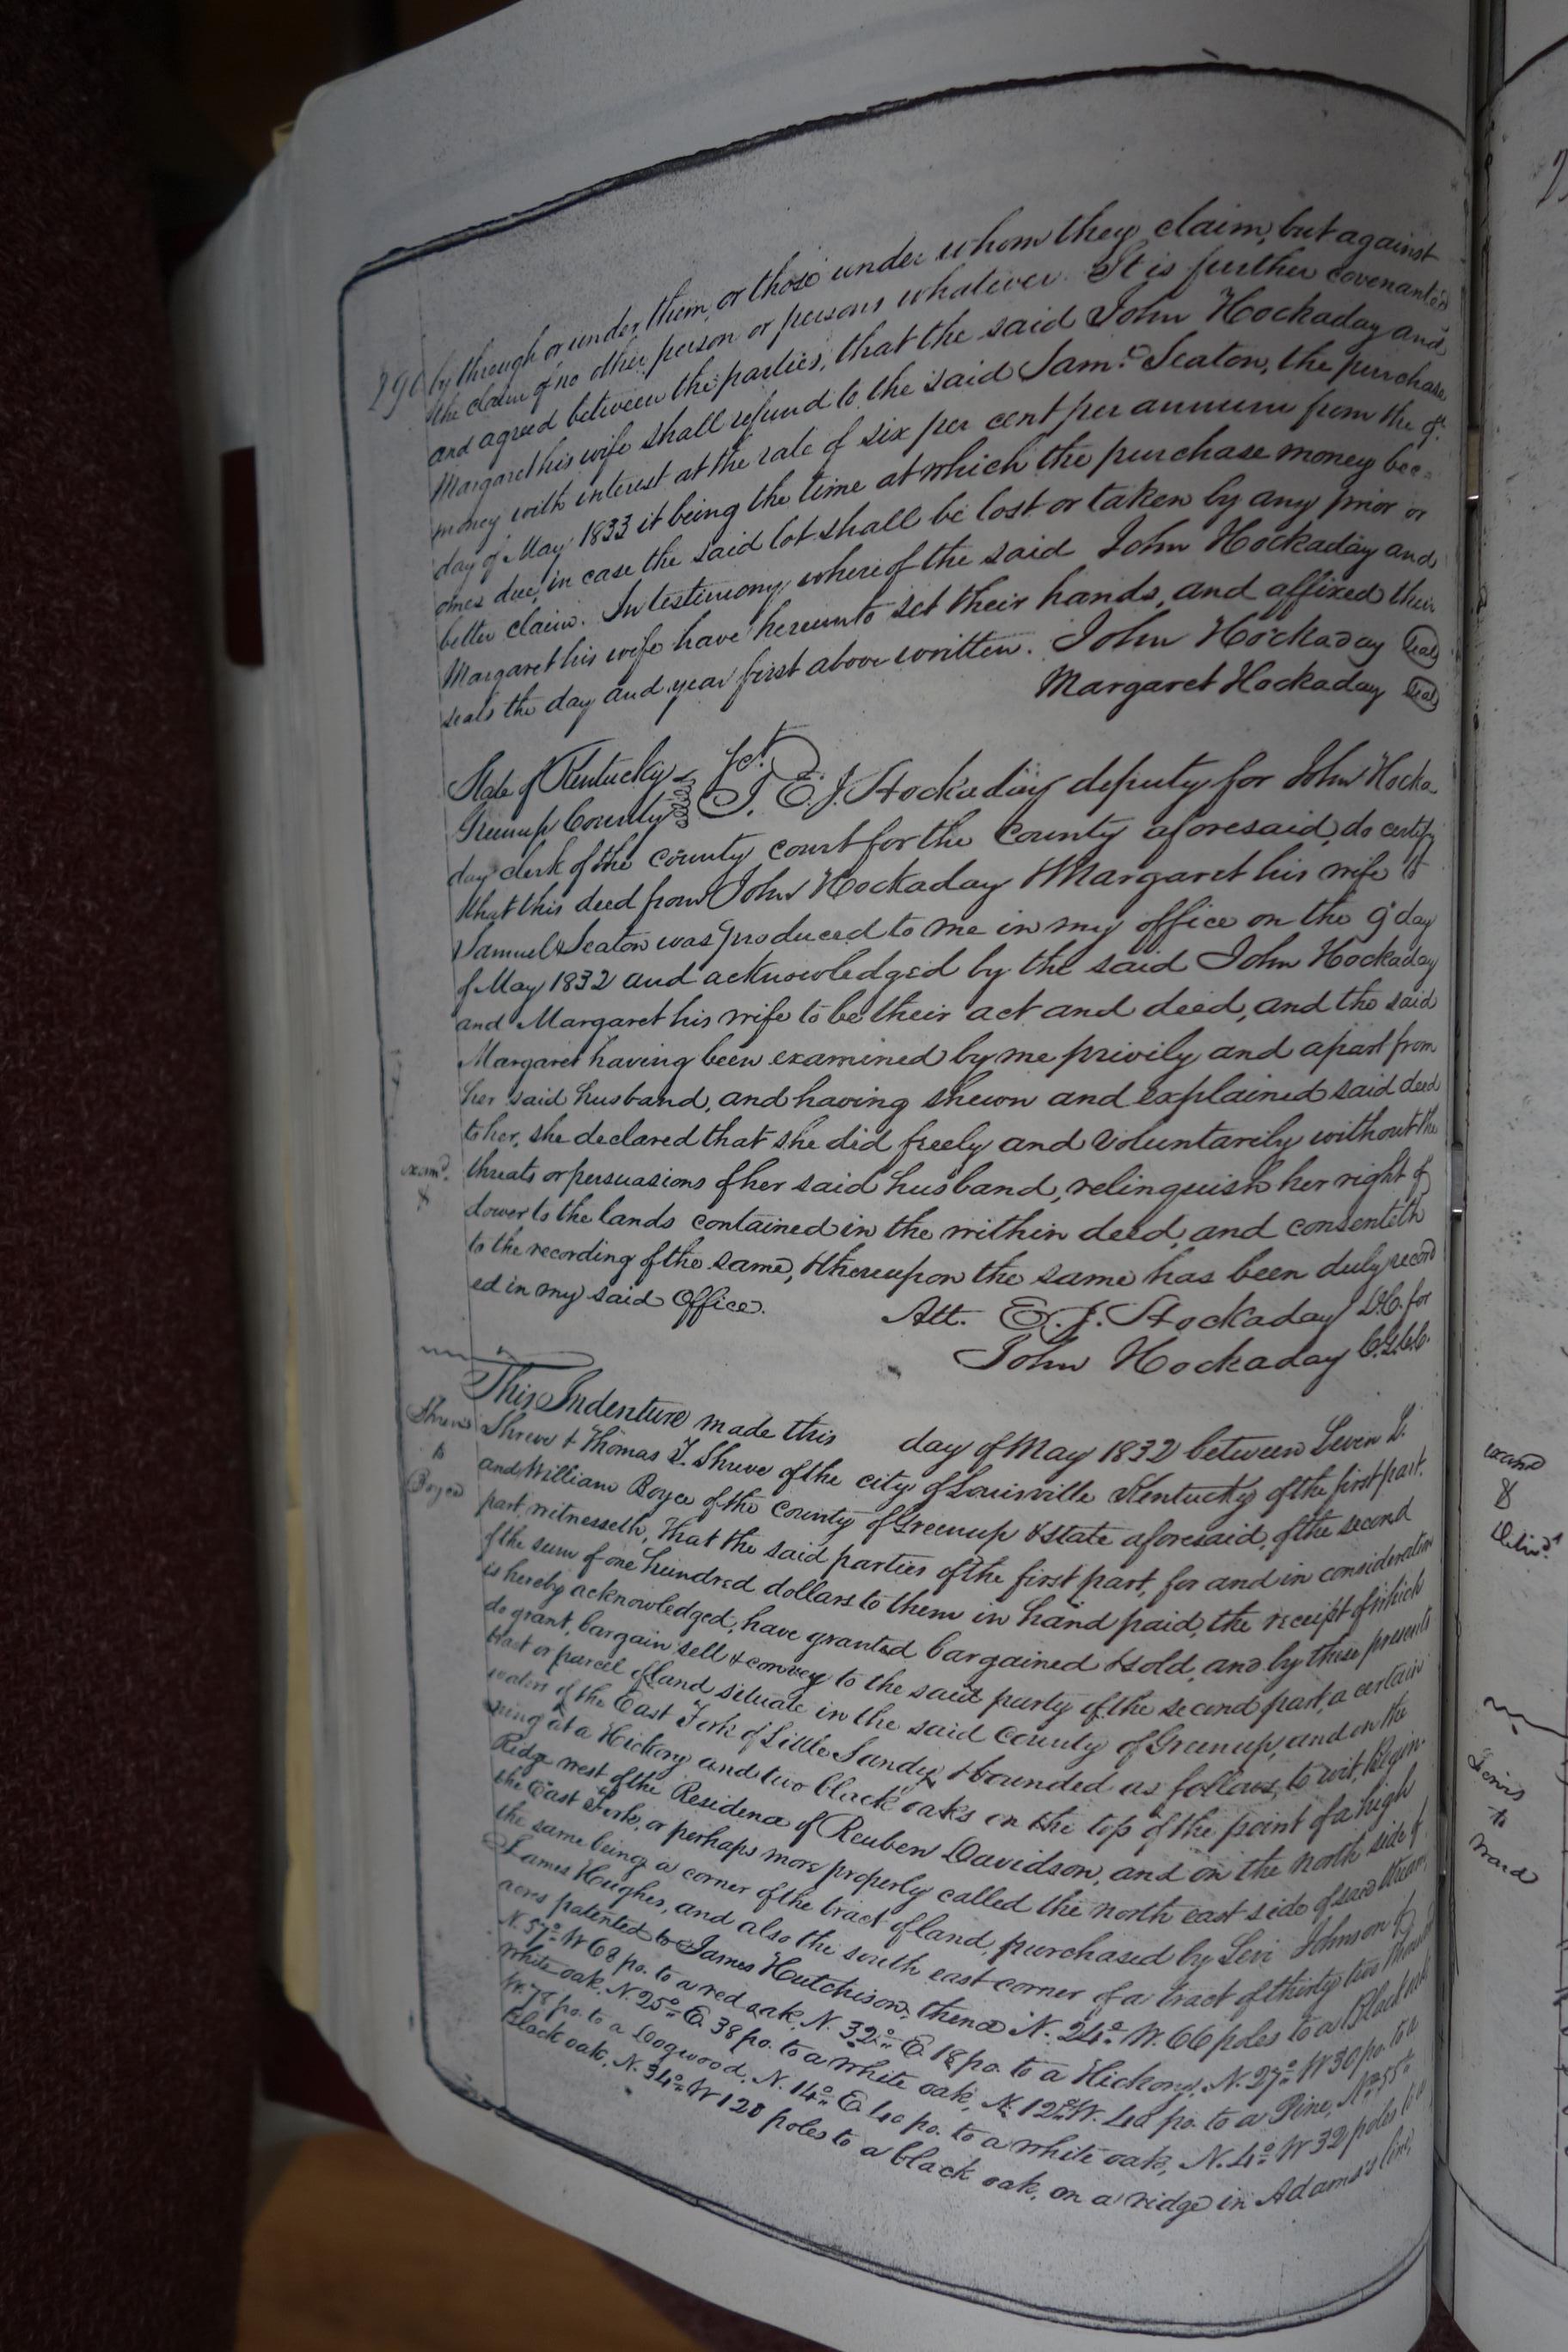 by through or under them, or those under whom they claim, but against
the claim of no other person or persons whatever. It is further covenanted
and agreed between the parties, that the said John Hockaday and
Margaret his wife shall refund to the said Saml. Seaton, the purchase
money with interest at the rate of six per cent per annum from the 9th
day of May 1833 it being the time at which the purchase money bec=
omes due, in case the said lot shall be lost or taken by any prior or
better claim. In testimony whereof the said John Hockaday and
Margaret his wife have hereunto set their hands, and affixed their
seals the day and year first above written. John Hockaday Seal
Margaret Hockaday Seal
State of Kentucky
Greenup County Sct. I, E. J. Hockaday deputy for John Hocka
day clerk of the county court for the County aforesaid, do certify
that this deed from John Hockaday & Margaret his wife to
Samuel Seaton was produced to me in my office on the 9th day
of May 1832 and acknowledged by the said John Hockaday
and Margaret his wife to be their act and deed, and the said
Margaret having been examined by me privily and apart from
her said husband, and having shewn and explained said deed
to her, she declared that she did freely and voluntarily without the
examd. threats or persuasions of her said husband, relinquish her right of
& dower to the lands contained in the within deed, and consenteth
to the recording of the same, & thereupon the same has been duly record
ed in my said Office.
Att. E. J. Hockaday D.C. for
John Hockaday C.G.C.C.
This Indenture made this day of May 1832 between Levin L.
Shreve Shreve & Thomas T. Shreve of the city of Louisville Kentucky of the first part.
to and William Boyce of the County of Greenup & state aforesaid, of the second
Boyce part, witnesseth, that the said parties of the first part, for and in consideration
of the sum of one hundred dollars to them in hand paid, the receipt of which
is hereby acknowledged, have granted bargained & sold, and by these presents
do grant, bargain sell & convey to the said party of the second part, a certain
tract or parcel of land situate in the said County of Greenup, and on the
waters of the East Fork of Little Sandy & bounded as follows, to wit, Begin-
ning at a Hickory and two black oaks on the top of the point of a high
Ridge west of the Residence of Reuben Davidson, and on the north side of
the East Fork, or perhaps more properly called the north east side of said stream,
the same being a corner of the tract of land, purchased by Levi Johnson of
James Hughes, and also the south east corner of a tract of thirty two thousand
acres patented to James Hutchison, thence N. 24° W. 66 poles to a Black oak
N. 57° W 68 po. to a red oak, N. 32° E 18 po. to a Hickory, N. 27° W 30 po. to a
white oak, N. 25° E. 38 po. to a white oak, N. 12° W. 40 po. to a Pine, N. 55°
W. 78 po. to a Dogwood, N. 14° E 40 po. to a white oak, N. 4° W 32 poles to a
Black oak, N. 34° W 120 poles to a black oak, on a ridge in Adams's line,
examd
&
Delivd.
to
Ward